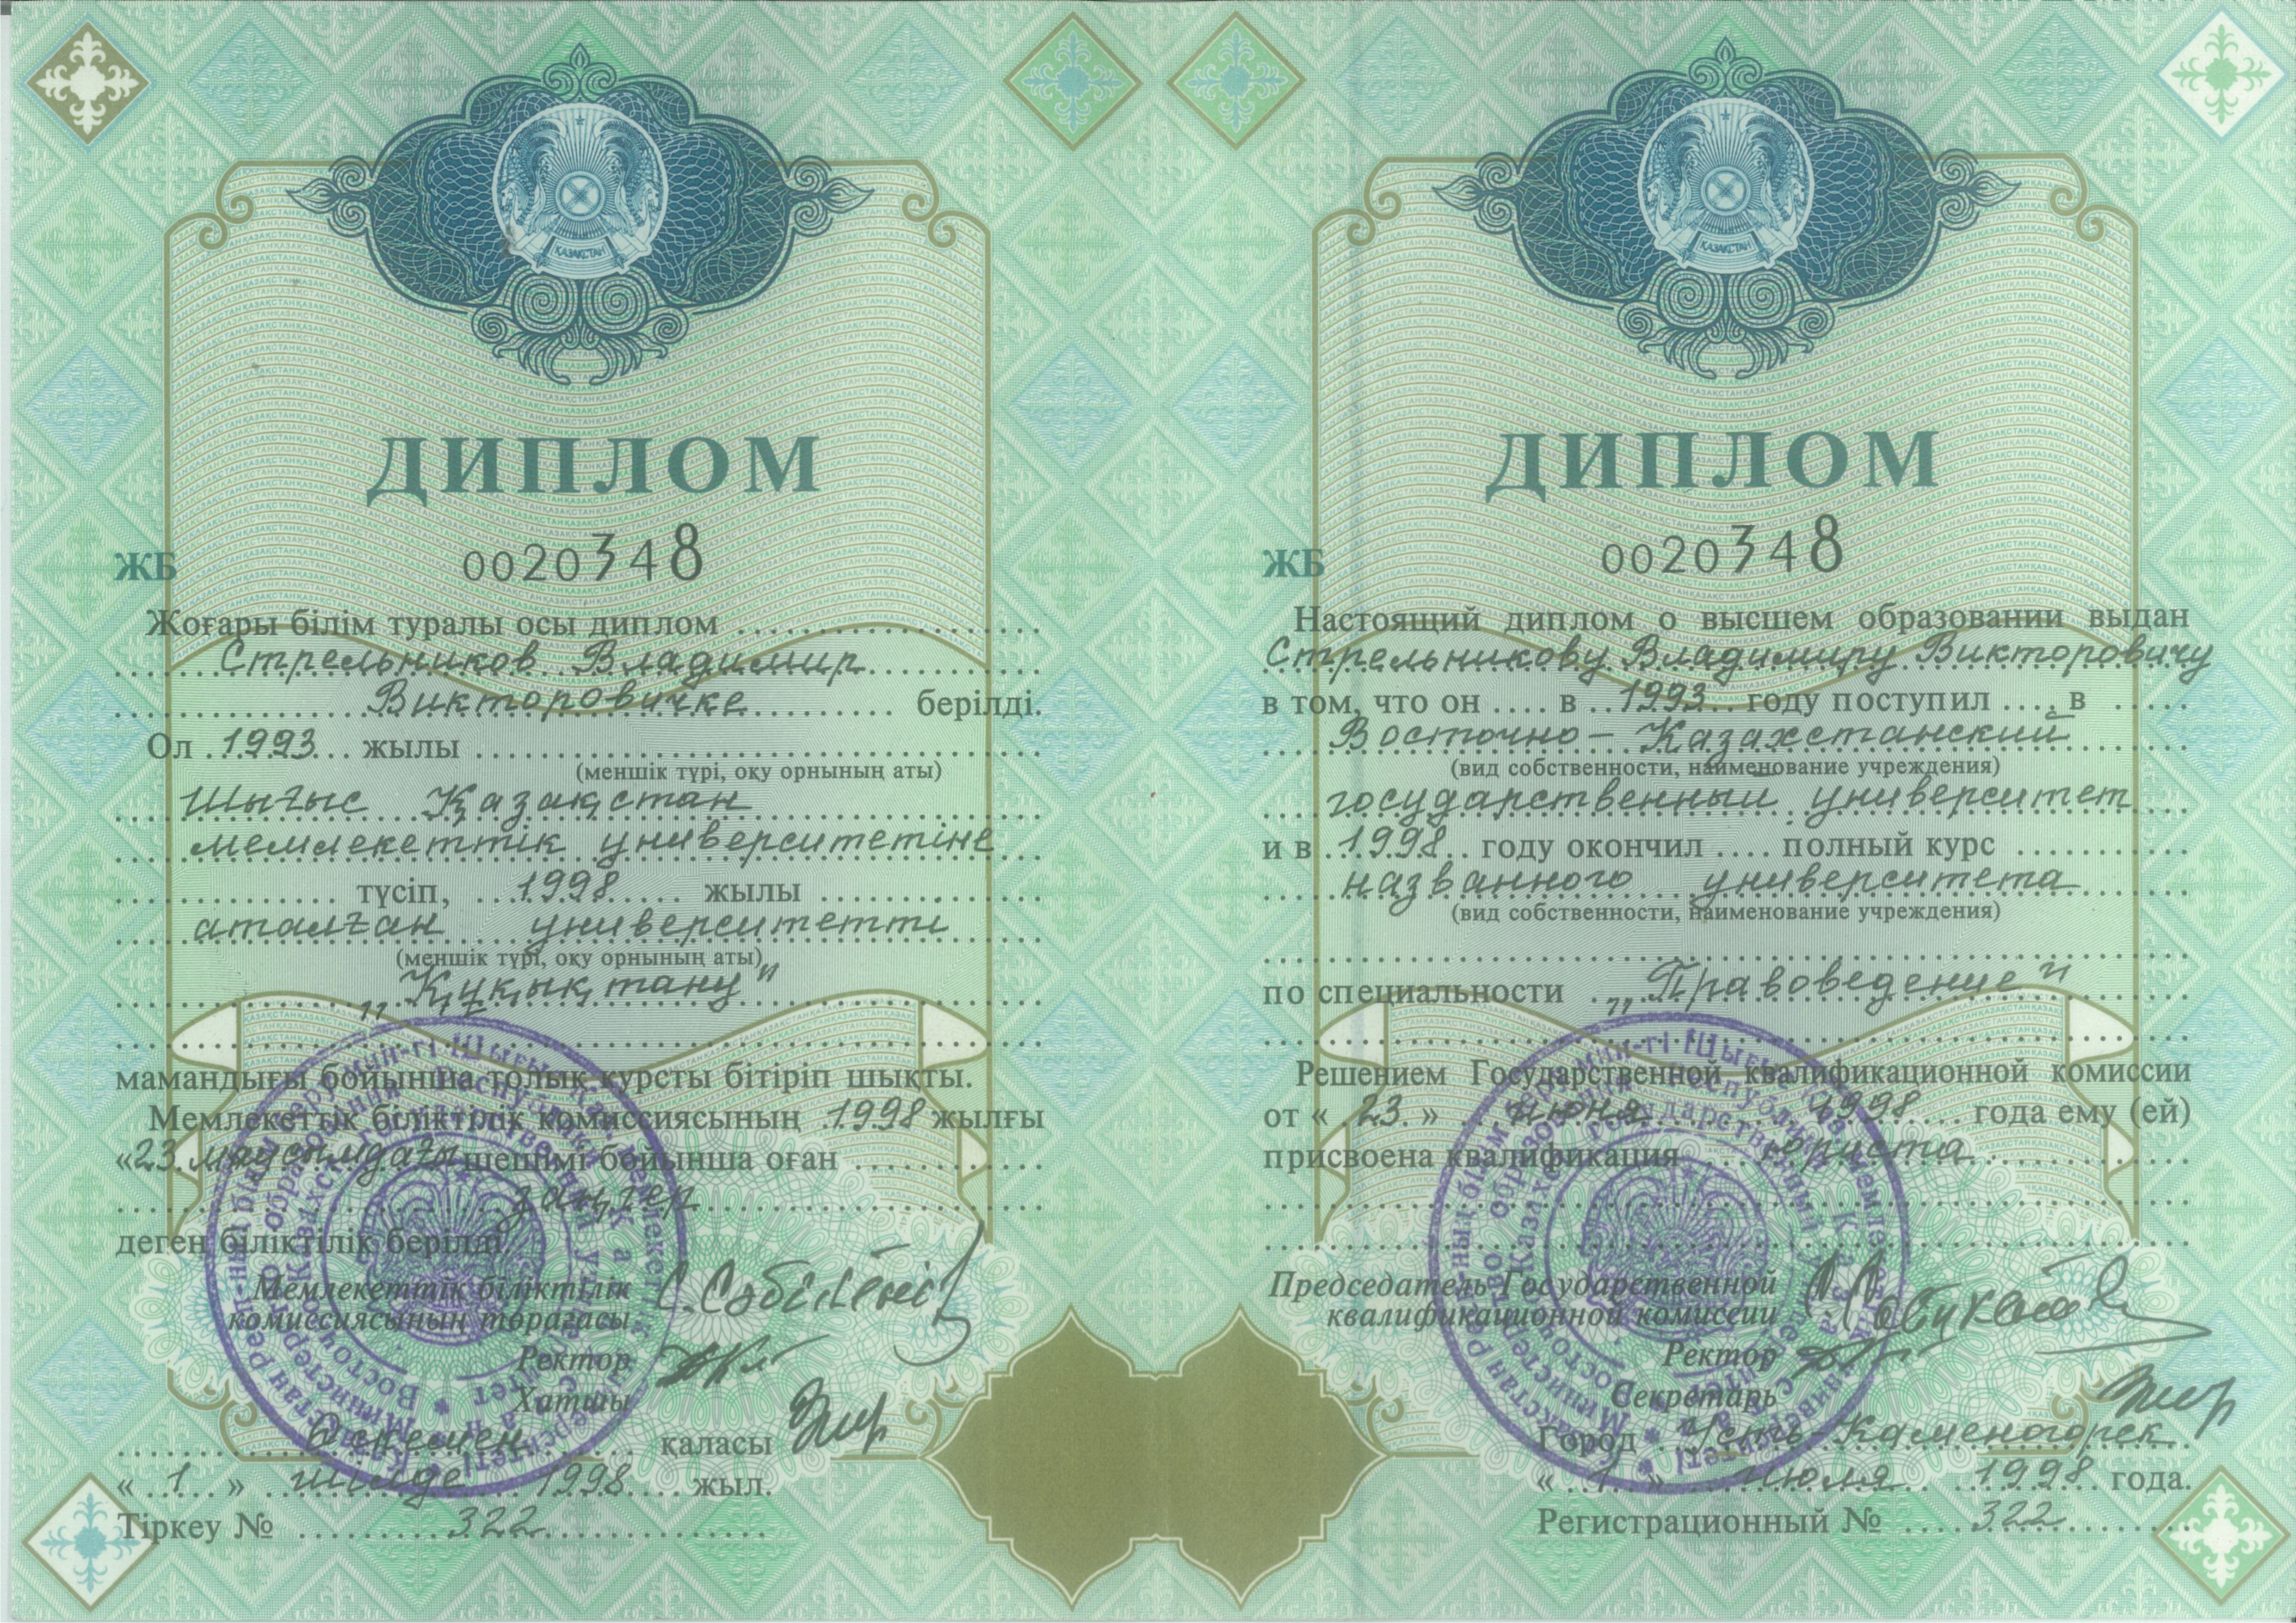 ҚАЗАҚСТАН
ДИПЛОМ
ЖБ 0020348
Жоғары білім туралы осы диплом
Стрельников Владимир
Викторовичке берілді.
Ол 1993 жылы
(меншік түрі, оқу орнының аты)
Шығыс Қазақстан
мемлекеттік университетіне
түсіп, 1998 жылы
аталған университетті
(меншік түрі, оқу орнының аты)
„Құқықтану"
мамандығы бойынша толық курсты бітіріп шықты.
Мемлекеттік біліктілік комиссиясының 1998 жылғы
«23 маусымдағы шешімі бойынша оған
заңгер
деген біліктілік берілді.
Мемлекеттік біліктілік
комиссиясының төрағасы
Ректор
Хатшы
Өскемен қаласы
« 1 » шілде 1998 жыл.
Тіркеу № 322
ҚАЗАҚСТАН
ДИПЛОМ
ЖБ 0020348
Настоящий диплом о высшем образовании выдан
Стрельникову Владимиру Викторовичу
в том, что он в 1993 году поступил в
Восточно-Казахстанский
(вид собственности, наименование учреждения)
государственный университет
и в 1998 году окончил полный курс
названного университета
(вид собственности, наименование учреждения)
по специальности „Правоведение"
Решением Государственной квалификационной комиссии
от « 23 » июня 1998 года ему (ей)
присвоена квалификация юриста
Председатель Государственной
квалификационной комиссии
Ректор
Секретарь
Город Усть-Каменогорск
« 1 » июля 1998 года.
Регистрационный № 322